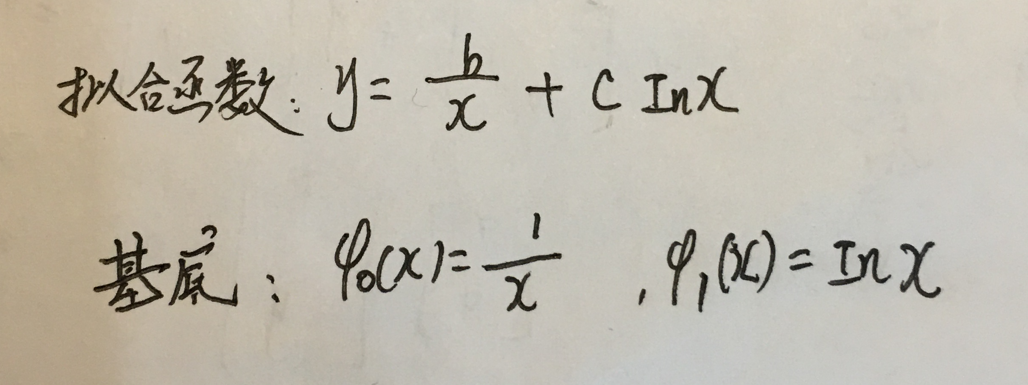 拟合函数: y = b/x + c Inx
基底: φ₀(x) = 1/x , φ₁(x) = Inx